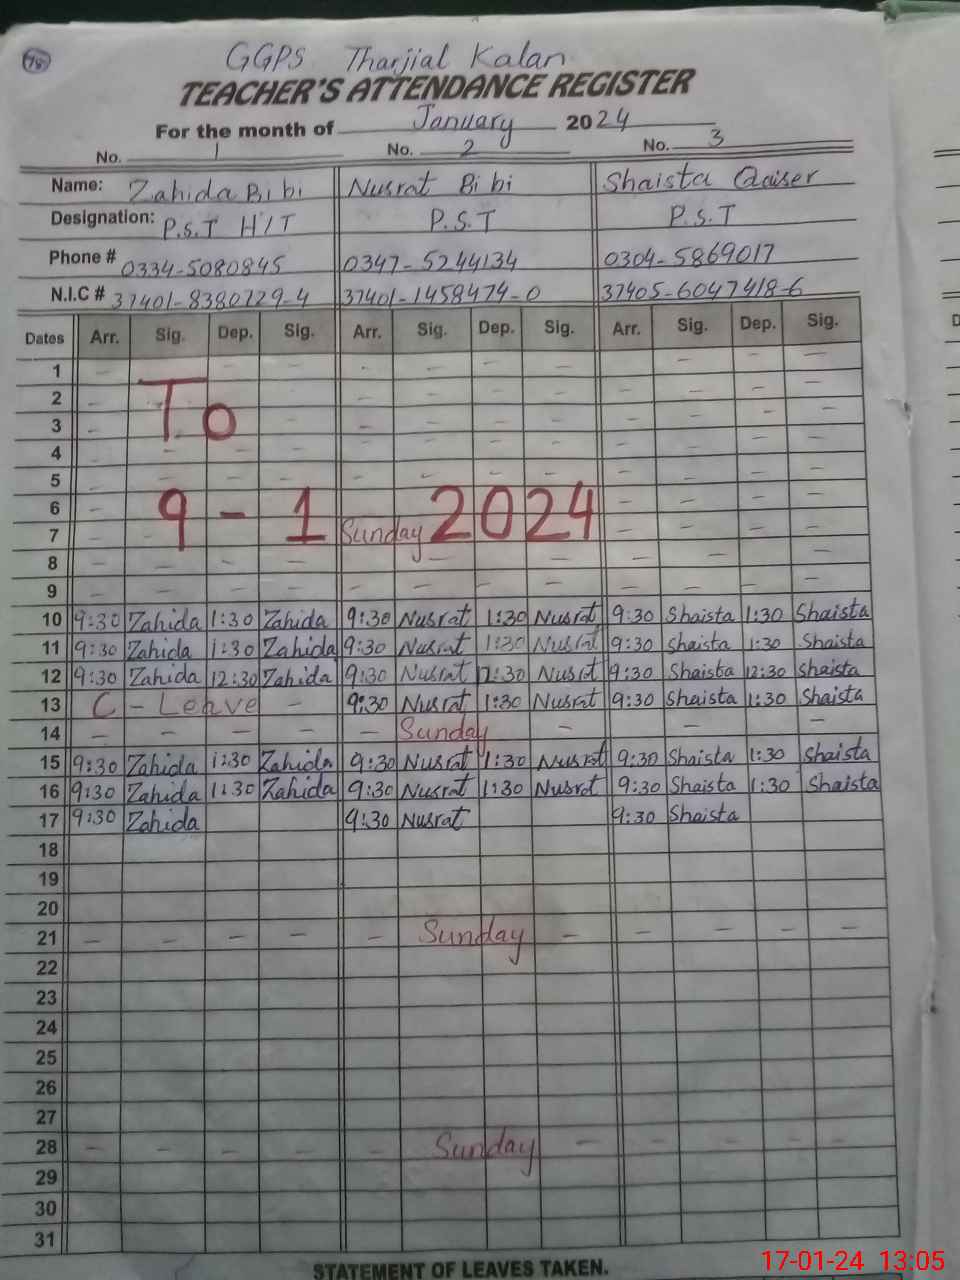 98
GGPS Tharjial Kalan
TEACHER'S ATTENDANCE REGISTER
For the month of January 2024
No. 1 No. 2 No. 3
Name: Zahida Bi bi Nusrat Bi bi Shaista Qaiser
Designation: P.S.T H/T P.S.T P.S.T
Phone # 0334-5080845 0347-5244134 0304-5869017
N.I.C # 37401-8380729-4 37401-1458474-0 37405-6047418-6
Dates Arr. Sig. Dep. Sig. Arr. Sig. Dep. Sig. Arr. Sig. Dep. Sig.
1 - - - - - - - - - - -
2 To - - - - - - - - -
3 - - - - - - - - - -
4 - - - - - - - - - - -
5 - - - - - - - - - - - -
6 9 - 1 2024 - - - -
7 - - Sunday - - - -
8 - - - - - - - - - - - -
9 - - - - - - - - - - - -
10 9:30 Zahida 1:30 Zahida 9:30 Nusrat 1:30 Nusrat 9:30 Shaista 1:30 Shaista
11 9:30 Zahida 1:30 Zahida 9:30 Nusrat 1:30 Nusrat 9:30 Shaista 1:30 Shaista
12 9:30 Zahida 12:30 Zahida 9:30 Nusrat 12:30 Nusrat 9:30 Shaista 12:30 Shaista
13 C - Leave - 9:30 Nusrat 1:30 Nusrat 9:30 Shaista 1:30 Shaista
14 - - - - - Sunday - - - - -
15 9:30 Zahida 1:30 Zahida 9:30 Nusrat 1:30 Nusrat 9:30 Shaista 1:30 Shaista
16 9:30 Zahida 1:30 Zahida 9:30 Nusrat 1:30 Nusrat 9:30 Shaista 1:30 Shaista
17 9:30 Zahida 9:30 Nusrat 9:30 Shaista
18
19
20
21 - - - - - Sunday - - - - -
22
23
24
25
26
27
28 - - - - - Sunday - - - - -
29
30
31
STATEMENT OF LEAVES TAKEN.
17-01-24 13:05